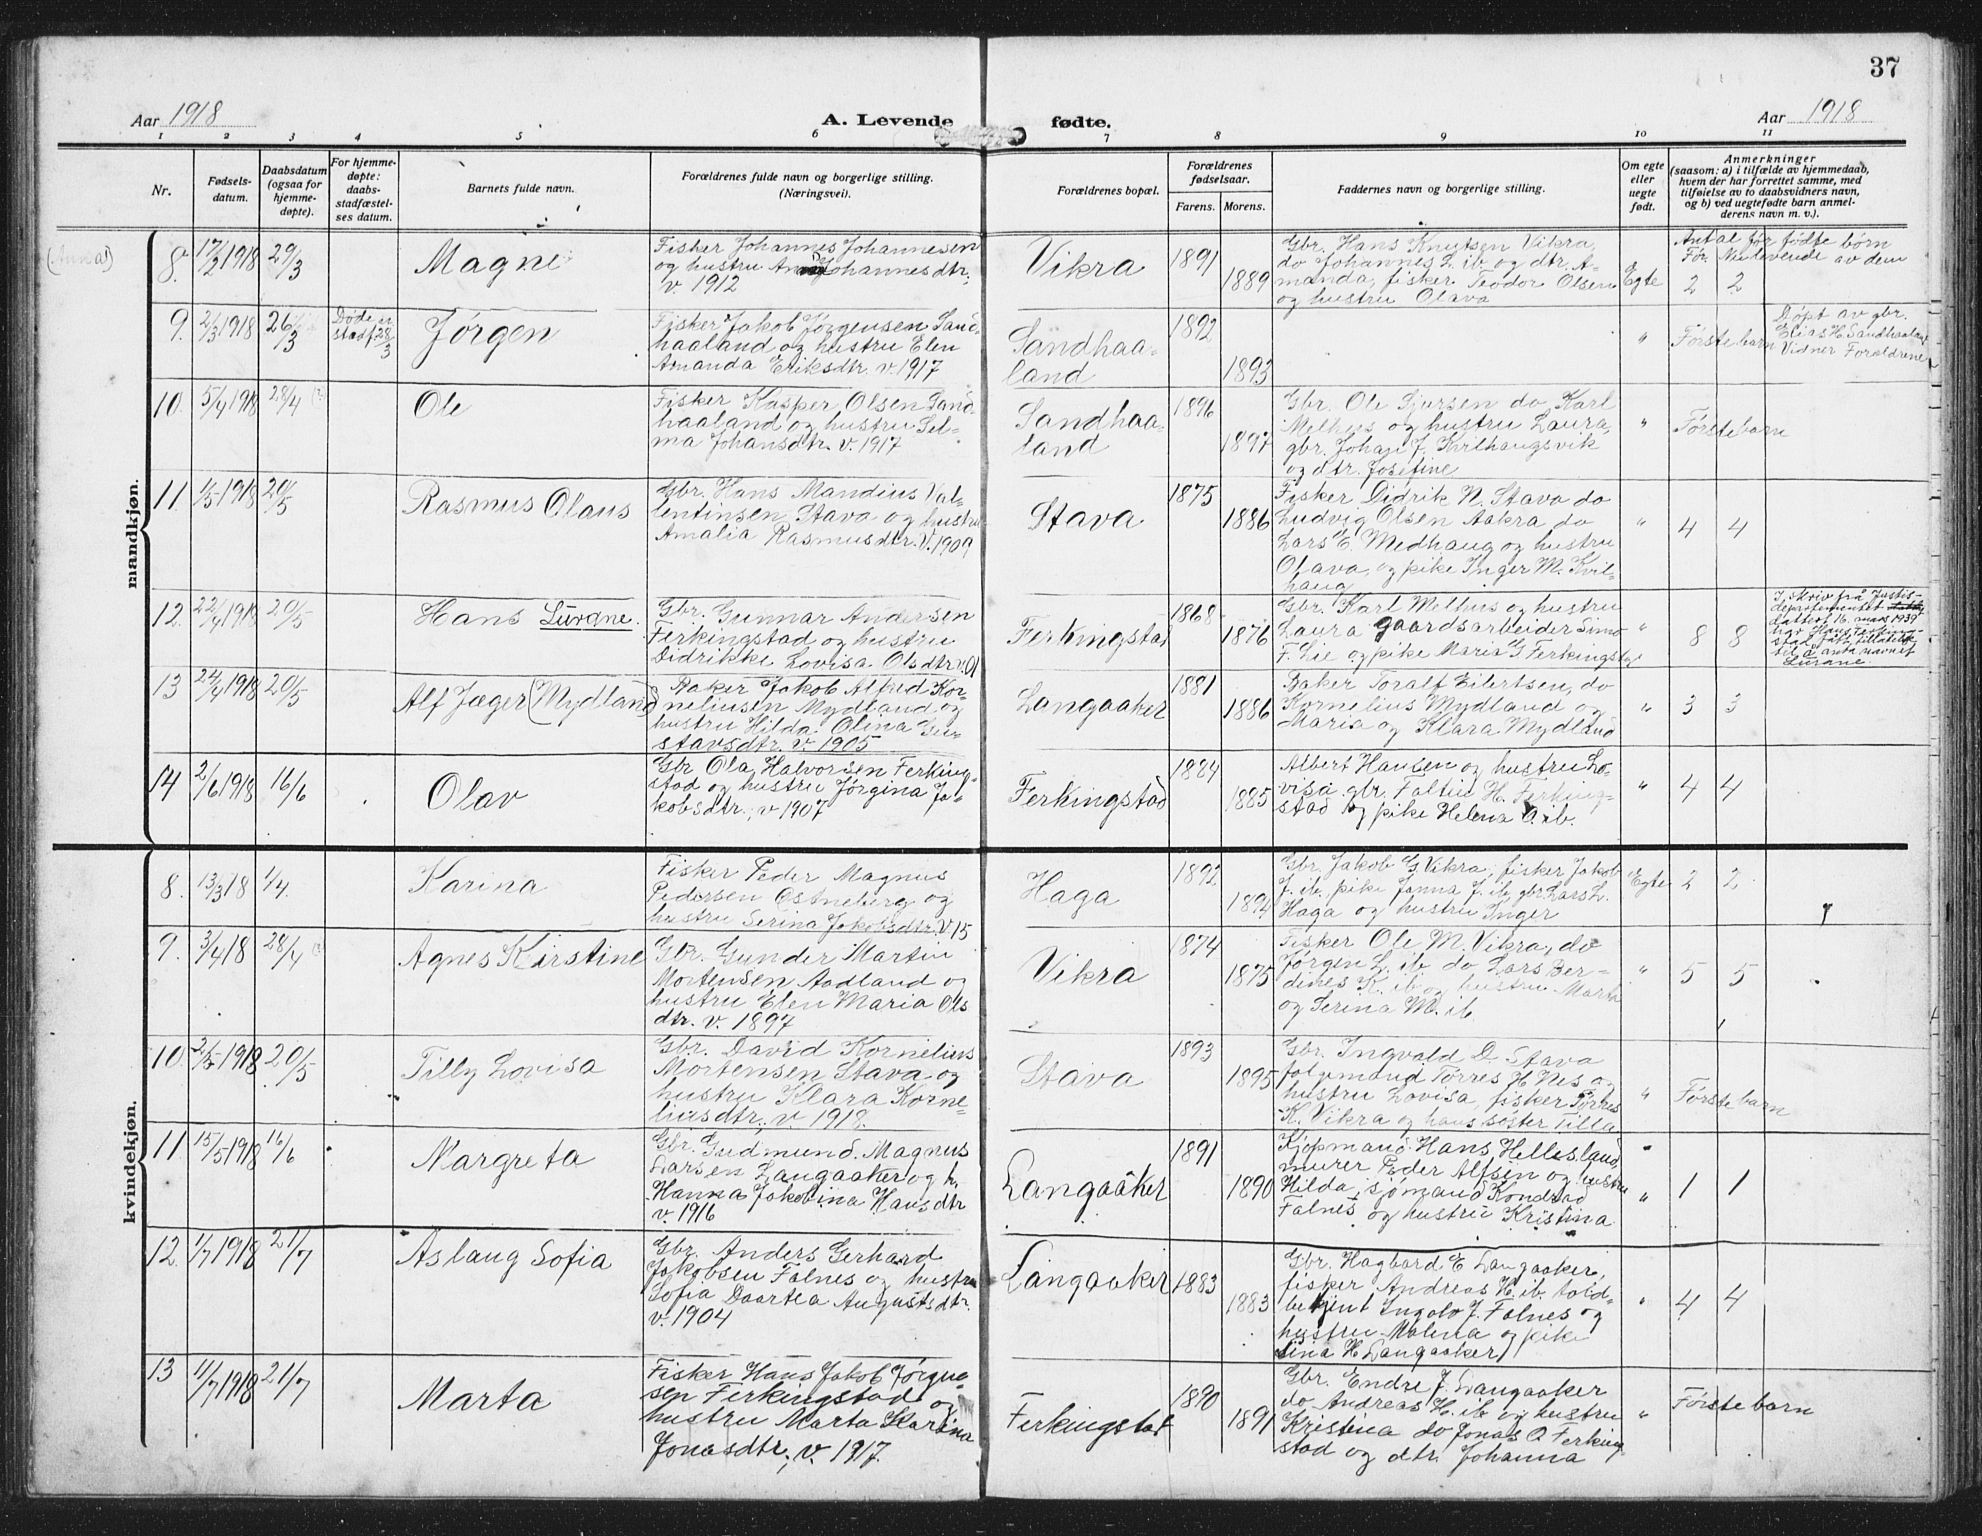 37
Aar 1918
A. Levende fødte.
Aar 1918
1 2 3 4 5 6 7 8 9 10 11
Nr.
Fødsels-
datum.
Daabsdatum
(ogsaa for
hjemme-
døpte).
For hjemme-
døpte:
daabs-
stadfæstel-
ses datum.
Barnets fulde navn.
Forældrenes fulde navn og borgerlige stilling.
(Næringsvei).
Forældrenes bopæl.
Forældrenes
fødselsaar.
Farens. Morens.
Faddernes navn og borgerlige stilling.
Om egte
eller
uegte
født.
Anmerkninger
(saasom: a) i tilfælde av hjemmedaab,
hvem der har forrettet samme, med
tilføielse av to daabsvidners navn,
og b) ved uegtefødte barn anmel-
derens navn m. v.).
mandkjøn.
(Anna)
8. 17/2 1918 29/3
Magne
Fisker Johannes Johannesen
og hustru Johannesdtr.
v. 1912
Vikra
1891
1889
Gbr. Hans Knutsen Vikra,
do Johannes L. ib og dtr. A-
manda, fisker Teodor Olsen
og hustru Olava
Egte
Antal før fødte børn
Før. Nulevende av dem
2 2
9. 2/3 1918 26/3
stadf 28/3
Jørgen
Fisker Jakob Jørgensen Sand-
haaland og hustru Elen
Amanda Eriksdtr. v. 1917
Sandhaa-
land
1892
1893
"
Første barn
Døpt av gbr.
Elias H. Sandhaaland
Vidner Forældrene
10. 5/4 1918 28/4
Ole
Fisker Kasper Olsen Sand-
haaland og hustru Sel-
ma Johansdtr. v. 1917
Sandhaa-
land
1896
1897
Gbr. Ole Sjursen do Karl
Melhus og hustru Laura,
gbr. Johan J. Kvilhaugsvik
og dtr. Josefine
"
Første barn
11 1/5 1918 20/5
Rasmus Olaus
Gbr. Hans Mandius Val-
lentinsen Stava og hustru
Amalia Rasmusdtr. v. 1909
Stava
1875
1886
Fisker Didrik N. Stava do
Ludvig Olsen Aakra do
Lars E. Medhaug og hustru
Olava, og pike Inger M. Kvil-
haug
"
4 4
12. 22/4 1918 20/5
Hans Lurane.
Gbr. Gunnar Andersen
Ferkingstad og hustru
Didrikke Lovisa Olsdtr. v. 01
Ferkingstad
1868
1876
Gbr. Karl Melhus og hustru
Laura gaardsarbeider Simo
F. Lie og pike Maria G Ferkingstad
"
8 8
I skriv frå Justis-
departementet
datter 16. mars 1939
til å anta navnet
Lurane.
13 24/4 1918 20/5
Alf Jæger (Mydland)
Baker Jakob Alfred Kor-
neliusen Mydland og
hustru Hilda Olina Gu-
stavsdtr. v. 1905
Langaaker
1881
1886
Baker Toralf Eilertsen, do
Kornelius Mydland og
Maria og Klara Mydland
"
3 3
14 2/6 1918 16/6
Olav
Gbr Ola Halvorsen Ferking-
stad og hustru Jørgina Ja-
kobsdtr., v. 1907
Ferkingstad
1884
1885
Albert Hansen og hustru Lo-
visa gbr. Faltin H. Ferking-
stad og pike Helena O. ib.
"
4 4
kvindekjøn.
8. 13/3 18 1/4.
Karina
Fisker Peder Magnus
Pedersen Ostneberg og
hustru Serina Jakobsdtr. v. 15
Haga
1892
1894
Gbr. Jakob G Vikra, fisker Jakob
J. ib, pike Janna J. ib, gbr. Lars L.
Haga og hustru Inger
Egte
2 2
9. 3/4 18 28/4
Agnes Kirstine
Gbr. Gunder Martin
Mortensen Aadland og
hustru Elen Maria Ols
dtr. v. 1897
Vikra
1874
1875
Fisker Ole M. Vikra, do
Jørgen L. ib. do Lars Ber-
dines K. ib og hustru Marta
og Serina M. ib.
"
5 5
10. 2/5 1918 20/5
Tilly Lovisa
Gbr. David Kornelius
Mortensen Stava og
hustru Klara Korne-
liusdtr., v. 1918.
Stava
1893
1895
Gbr. Ingvald D. Stava
Torres H Nes og
hustru Lovisa, fisker Torres
K. Vikra og hans søster Tilla
"
Første barn
11 15/5 1918 16/6
Margreta
Gbr. Gudmund. Magnus
Larsen Langaaker og h.
Hanna Jakobina Hansdtr
v. 1916
Langaaker
1891
1890
Kjøpmand Hans Hellesland,
murer Peder Alfsen og hustru
Hilda, sjømand Kondrad
Falnes og hustru Kristina
"
1 1
12. 1/7 1918 21/7
Aslaug Sofia
Gbr. Anders Gerhard
Jakobsen Falnes og hustru
Sofia Daartea Augustsdtr.
v. 1904
Langaaker
1883
1883
Gbr. Hagbard E Langaaker,
fisker Andreas H. ib. told-
betjent Ingolv J. Falnes og
hustru Malena og pike
Lina H Langaaker
"
4 4
13 11/7 1918 21/7
Marta
Fisker Hans Jakob Jørgen-
sen Ferkingstad og
hustru Marta Karina
Jonasdtr., v. 1917.
Ferkingstad
1890
1891
Gbr. Endre J. Langaaker
do Andreas H. ib og hustru
Kristina do Jonas O. Ferking-
stad og dtr. Johanna
"
Første barn